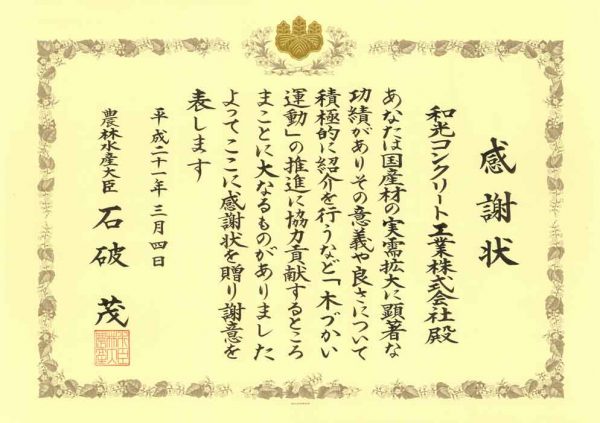 感謝状
和光コンクリート工業株式会社殿
あなたは国産材の実需拡大に顕著な
功績がありその意義や良さについて
積極的に紹介を行うなど「木づかい
運動」の推進に協力貢献するところ
まことに大なるものがありました
よってここに感謝状を贈り謝意を
表します
平成二十一年三月四日
農林水産大臣
石破 茂